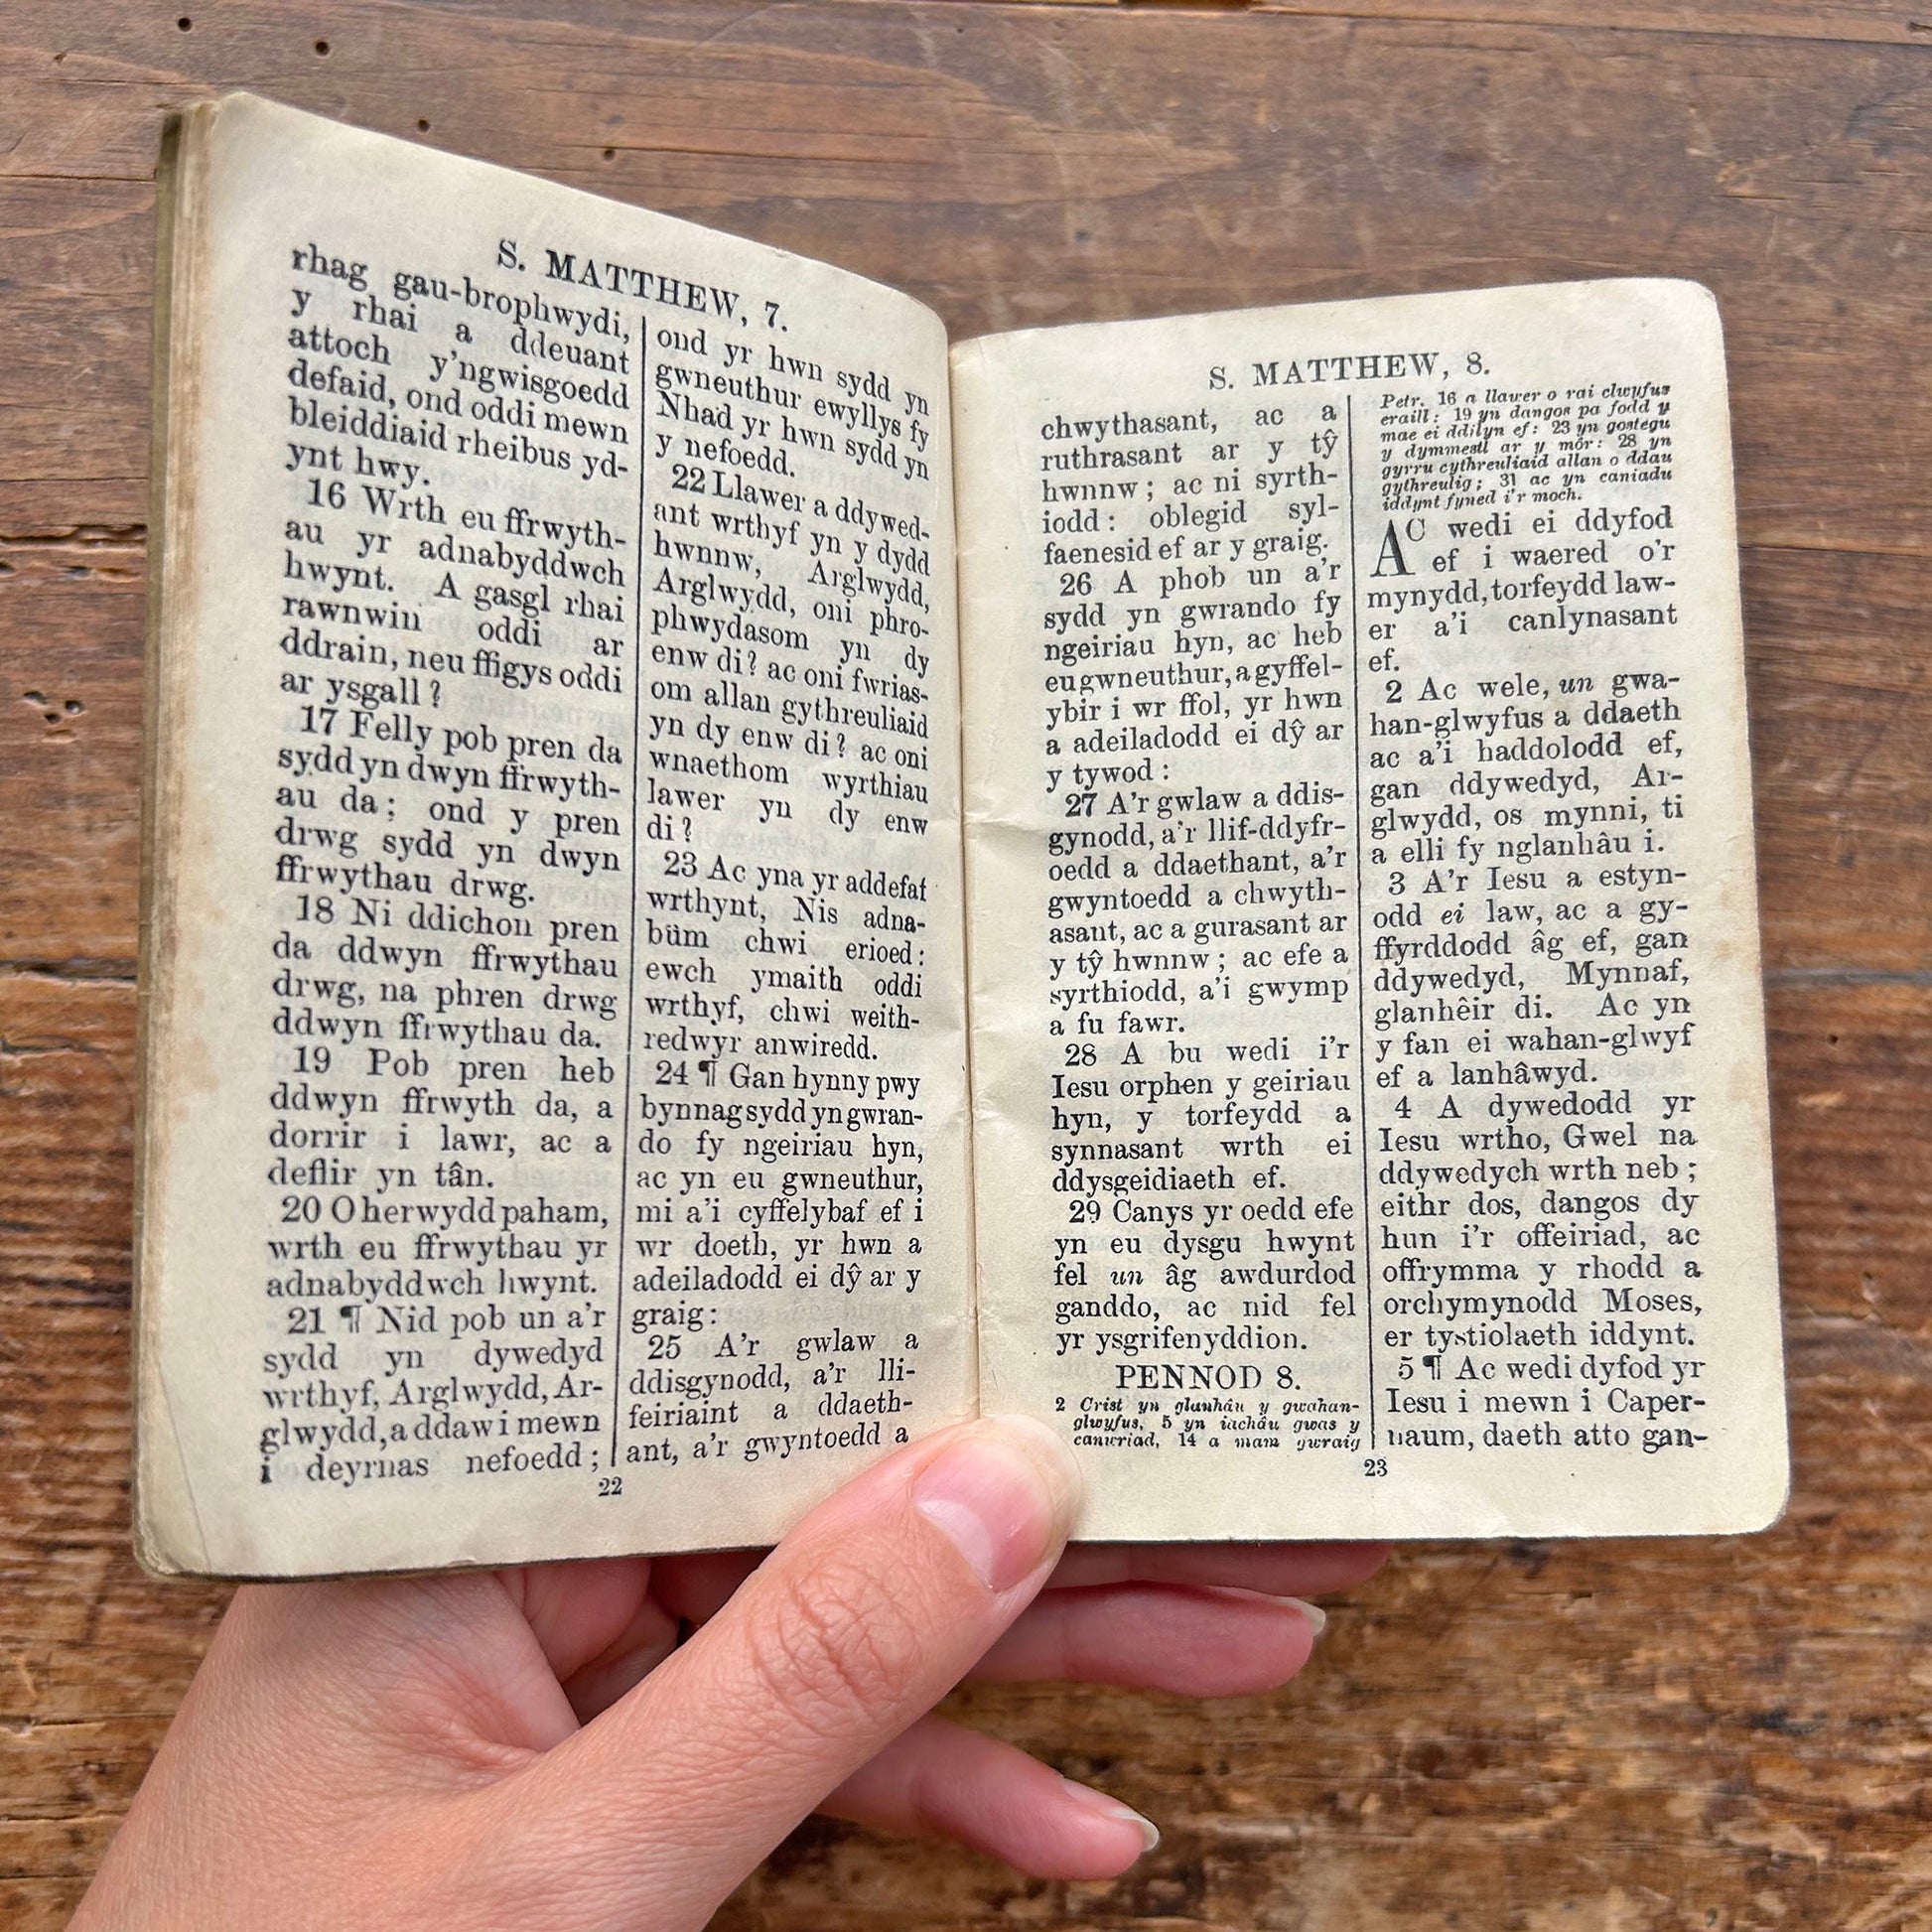 S. MATTHEW, 7.
rhag gau-brophwydi,
y rhai a ddeuant
attoch y'ngwisgoedd
defaid, ond oddi mewn
bleiddiaid rheibus yd-
ynt hwy.
16 Wrth eu ffrwyth-
au yr adnabyddwch
hwynt. A gasgl rhai
rawnwin oddi ar
ddrain, neu ffigys oddi
ar ysgall?
17 Felly pob pren da
sydd yn dwyn ffrwyth-
au da; ond y pren
drwg sydd yn dwyn
ffrwythau drwg.
18 Ni ddichon pren
da ddwyn ffrwythau
drwg, na phren drwg
ddwyn ffrwythau da.
19 Pob pren heb
ddwyn ffrwyth da, a
dorrir i lawr, ac a
deflir yn tân.
20 Oherwydd paham,
wrth eu ffrwythau yr
adnabyddwch hwynt.
21 ¶ Nid pob un a'r
sydd yn dywedyd
wrthyf, Arglwydd, Ar-
glwydd, a ddaw i mewn
i deyrnas nefoedd;
ond yr hwn sydd yn
gwneuthur ewyllys fy
Nhad yr hwn sydd yn
y nefoedd.
22 Llawer a ddywed-
ant wrthyf yn y dydd
hwnnw, Arglwydd,
Arglwydd, oni phro-
phwydasom yn dy
enw di? ac oni fwrias-
om allan gythreuliaid
yn dy enw di? ac oni
wnaethom wyrthiau
lawer yn dy enw
di?
23 Ac yna yr addefaf
wrthynt, Nis adna-
büm chwi erioed:
ewch ymaith oddi
wrthyf, chwi weith-
redwyr anwiredd.
24 ¶ Gan hynny pwy
bynnag sydd yn gwran-
do fy ngeiriau hyn,
ac yn eu gwneuthur,
mi a'i cyffelybaf ef i
wr doeth, yr hwn a
adeiladodd ei dŷ ar y
graig:
25 A'r gwlaw a
ddisgynodd, a'r lli-
feiriaint a ddaeth-
ant, a'r gwyntoedd a
22
S. MATTHEW, 8.
chwythasant, ac a
ruthrasant ar y tŷ
hwnnw; ac ni syrth-
iodd: oblegid syl-
faenesid ef ar y graig.
26 A phob un a'r
sydd yn gwrando fy
ngeiriau hyn, ac heb
eu gwneuthur, a gyffel-
ybir i wr ffol, yr hwn
a adeiladodd ei dŷ ar
y tywod:
27 A'r gwlaw a ddis-
gynodd, a'r llif-ddyfr-
oedd a ddaethant, a'r
gwyntoedd a chwyth-
asant, ac a gurasant ar
y tŷ hwnnw; ac efe a
syrthiodd, a'i gwymp
a fu fawr.
28 A bu wedi i'r
Iesu orphen y geiriau
hyn, y torfeydd a
synnasant wrth ei
ddysgeidiaeth ef.
29 Canys yr oedd efe
yn eu dysgu hwynt
fel un âg awdurdod
ganddo, ac nid fel
yr ysgrifenyddion.
PENNOD 8.
2 Crist yn glanhâu y gwahan-
glwyfus, 5 yn iachâu gwas y
canwriad, 14 a mam gwraig
Petr. 16 a llawer o rai clwyfus
eraill: 19 yn dangos pa fodd y
mae ei ddilyn ef: 23 yn gostegu
y dymmestl ar y môr: 28 yn
gyrru cythreuliaid allan o ddau
gythreulig; 31 ac yn caniadu
iddynt fyned i'r moch.
AC wedi ei ddyfod
ef i waered o'r
mynydd, torfeydd law-
er a'i canlynasant
ef.
2 Ac wele, un gwa-
han-glwyfus a ddaeth
ac a'i haddolodd ef,
gan ddywedyd, Ar-
glwydd, os mynni, ti
a elli fy nglanhâu i.
3 A'r Iesu a estyn-
odd ei law, ac a gy-
ffyrddodd âg ef, gan
ddywedyd, Mynnaf,
glanhêir di. Ac yn
y fan ei wahan-glwyf
ef a lanhâwyd.
4 A dywedodd yr
Iesu wrtho, Gwel na
ddywedych wrth neb;
eithr dos, dangos dy
hun i'r offeiriad, ac
offrymma y rhodd a
orchymynodd Moses,
er tystiolaeth iddynt.
5 ¶ Ac wedi dyfod yr
Iesu i mewn i Caper-
naum, daeth atto gan-
23